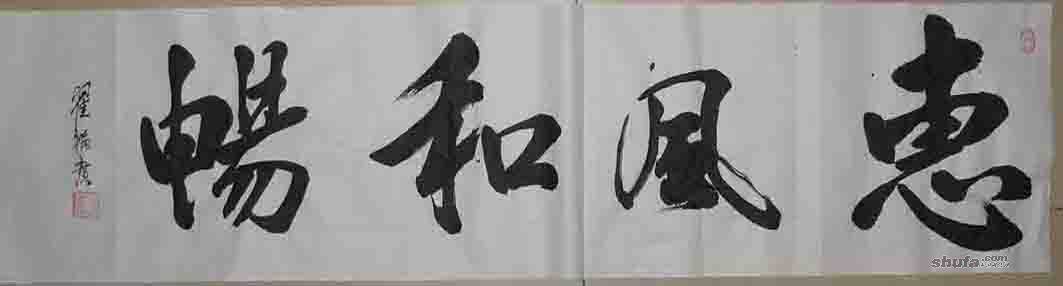 惠風和暢
shufa.com